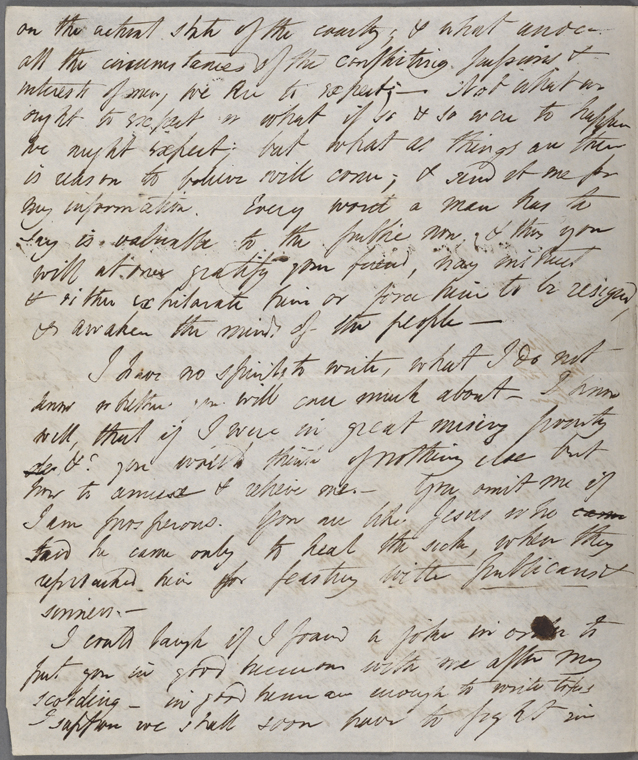 on the actual state of the country, & what under
all the circumstances of the conflicting passions &
interests of men, we are to expect; — Not what we
ought to expect or what if so & so were to happen
we might expect; but what as things are there
is reason to believe will come; & send it me for
my information. Every word a man has to
say is valuable to the public now, & thus you
will at once gratify your friend, nay instruct
& either exhilarate him or force him to be resigned,
& awaken the minds of the people —
I have no spirits to write, what I do not
know whether you will care much about — I know
well, that if I were in great misery poverty
&c you would think of nothing else but
how to amuse & relieve me. — You omit me if
I am prosperous. You are like Jesus who came
said he came only to heal the sick, when they
reproached him for feasting with publicans &
sinners. —
I could laugh if I found a joke in order to
put you in good humour with me after my
scolding — in good humour enough to write to us
I suppose we shall soon have to fight in